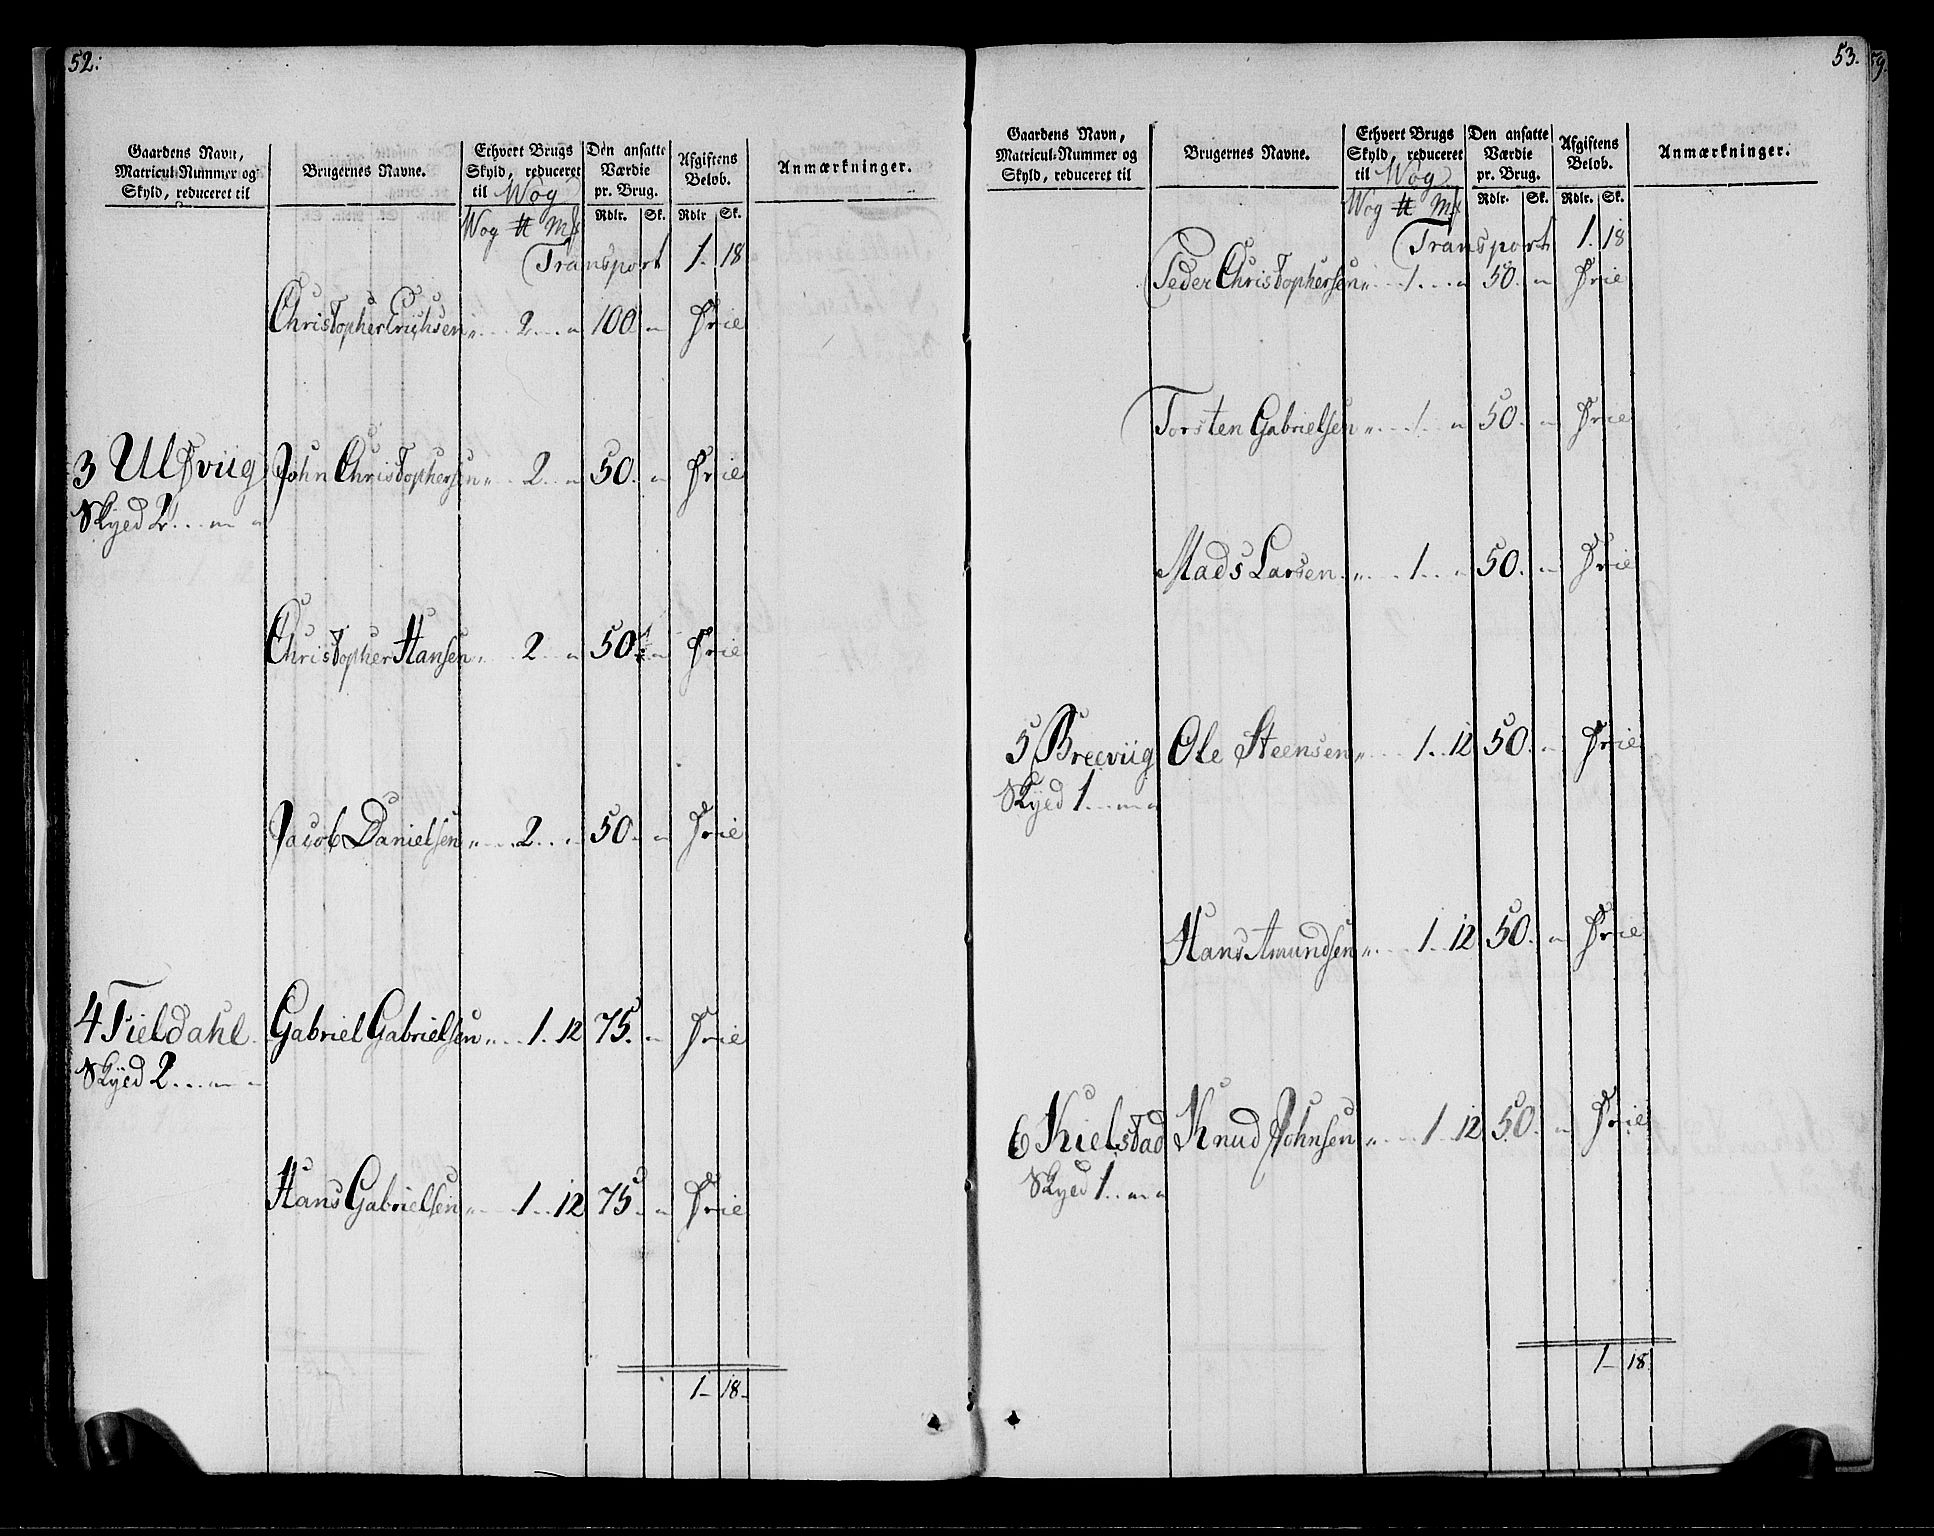 52.
Gaardens Navn, Matricul-Nummer og Skyld, reduceret til
Brugernes Navne.
Ethvert Brugs Skyld, reduceret til Wog
Den ansatte Værdie pr. Brug.
Afgiftens Beløb.
Anmærkninger.
Wog ℔ Mk Rdlr. Sk. Rdlr Sk.
Transport 1. 18
Christopher Erichsen „ 2 „ 100 „ Frie
3 Ulfsviig John Christophersen „ 2 „ 50. „ Frie
Skyed 2 „ „
Christopher Hansen „ 2 „ 50 „ Frie
Jacob Danielsen „ 2 „ 50. „ Frie
4 Fieldahl Gabriel Gabrielsen „ 1. 12 75. „ Frie
Skyed 2 „ „
Hans Gabrielsen „ 1. 12 75. „ Frie
1 18
53.
59.
Gaardens Navn, Matricul-Nummer og Skyld, reduceret til
Brugernes Navne.
Ethvert Brugs Skyld, reduceret til Wog
Den ansatte Værdie pr. Brug.
Afgiftens Beløb.
Anmærkninger.
Wog ℔ Mk Rdlr. Sk. Rdlr. Sk.
Transport 1. 18
Peder Christophersen „ 1 „ 50. „ Frie
Torsten Gabrielsen „ 1 „ 50. „ Frie
Mads Larsen „ 1 „ 50. „ Frie
5 Breeviig Ole Steensen „ 1. 12 50. „ Frie
Skyed 1 „ „
Hans Amundsen „ 1. 12 50. „ Frie
6 Kielstad Knud Johnsen „ 1 12 50. „ Frie
Skyed 1 „ „
1 18